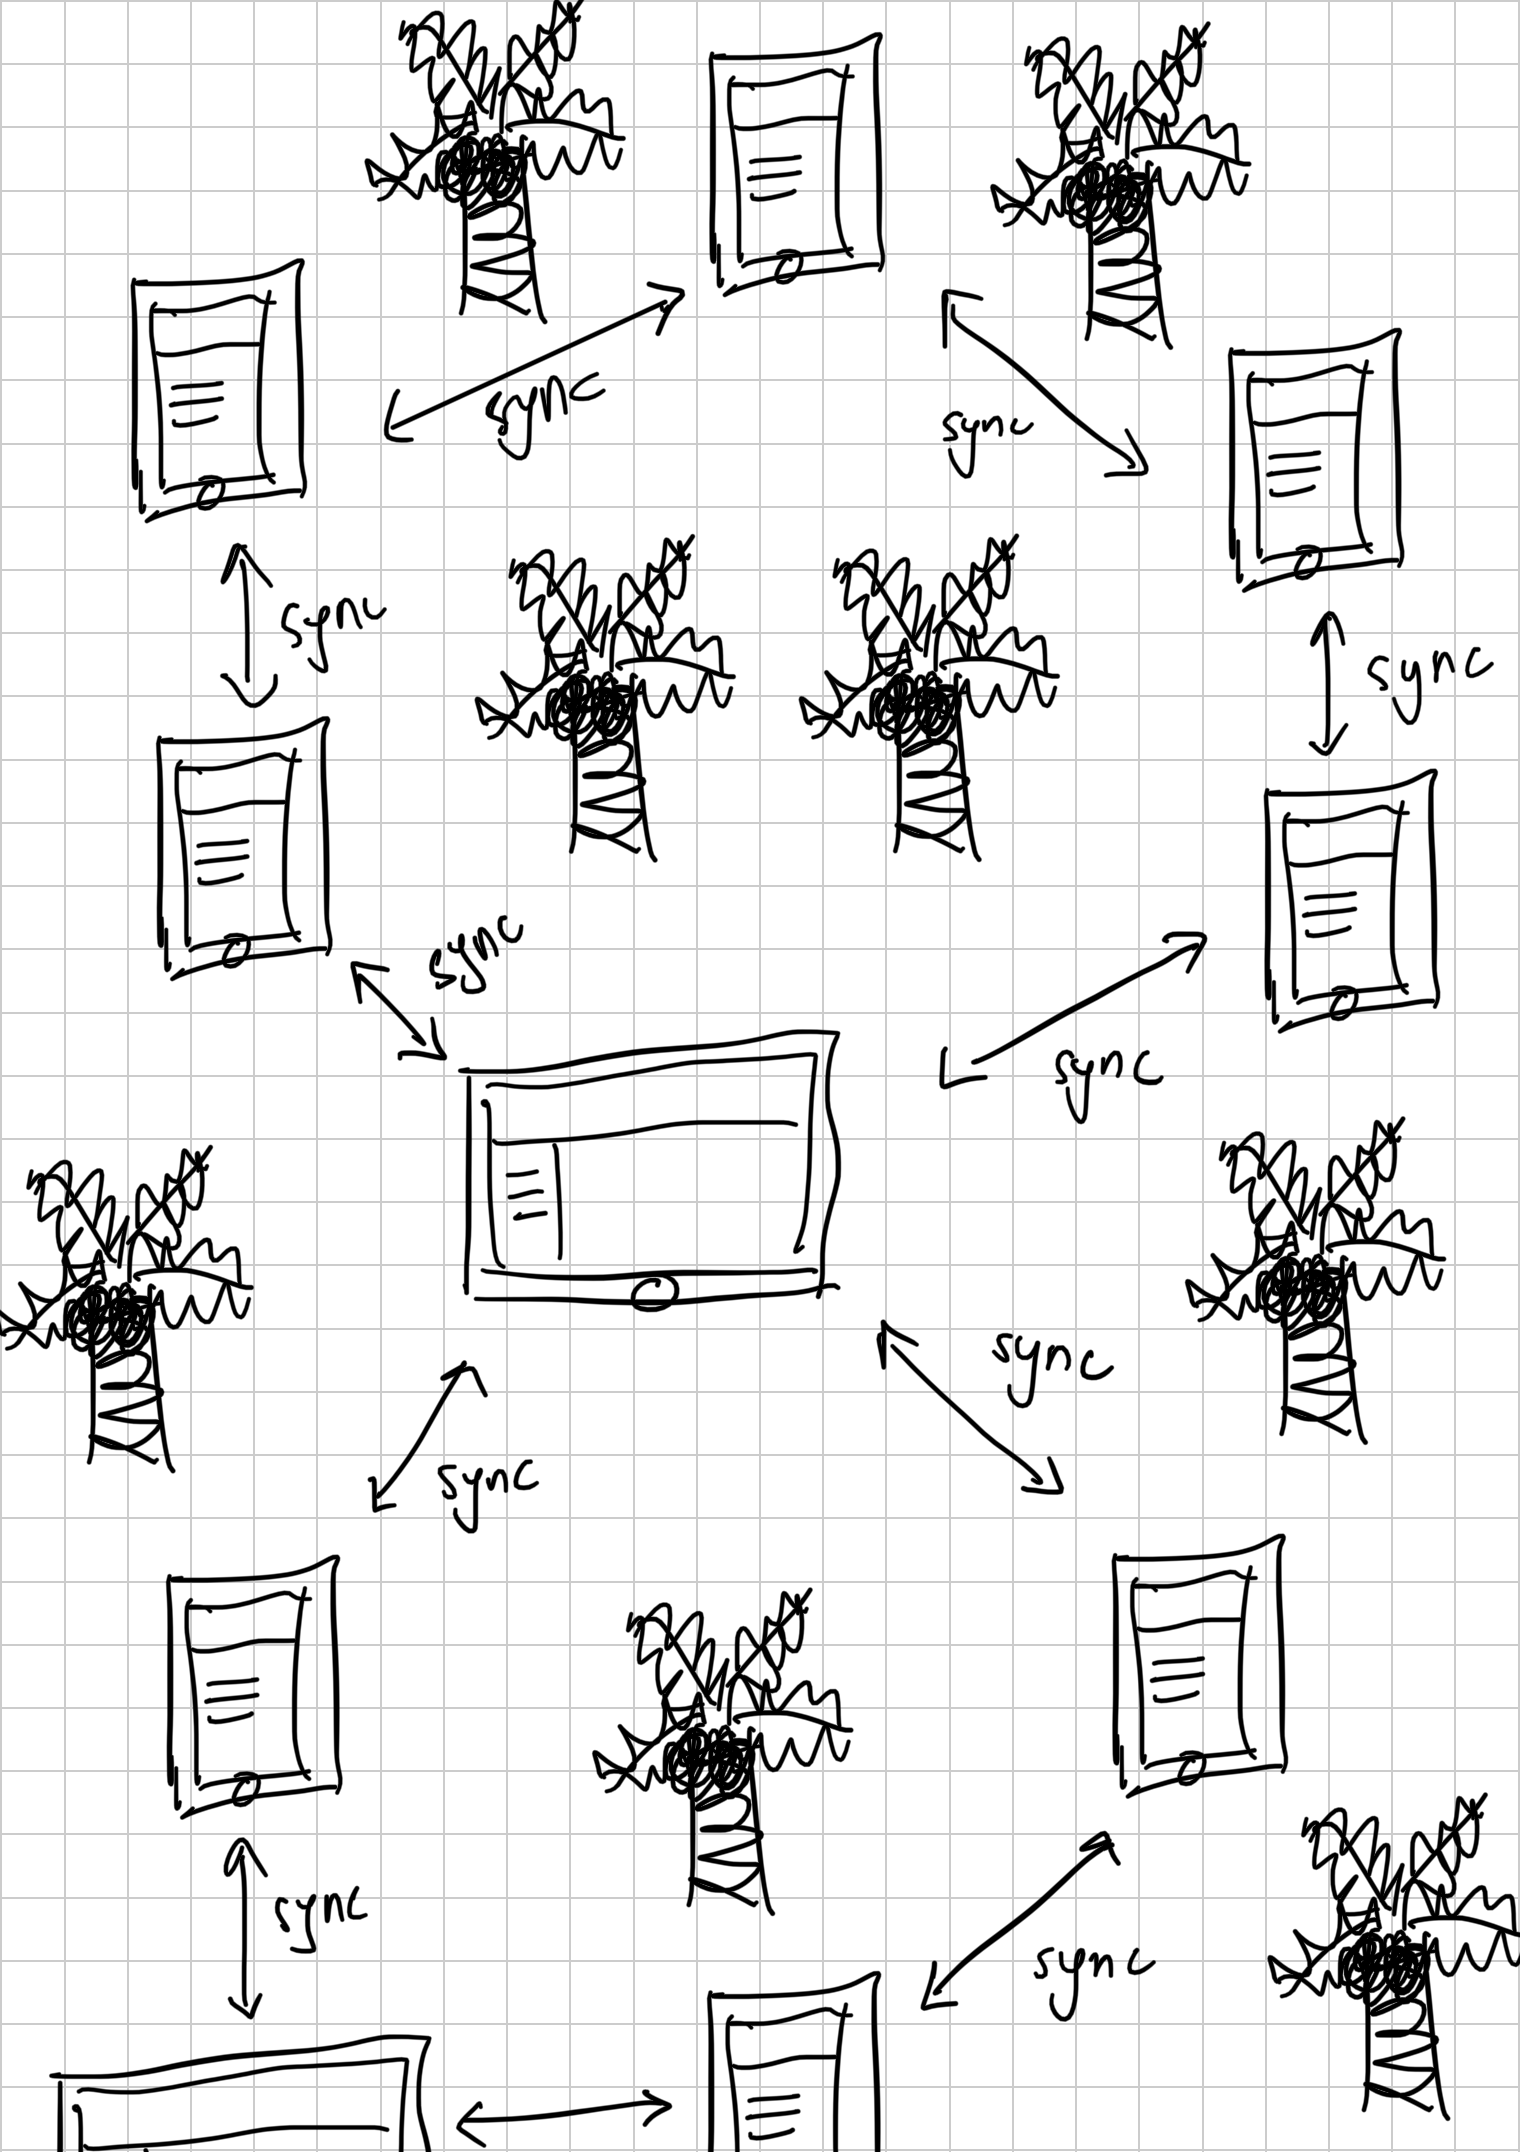 sync
sync
sync
sync
sync
sync
sync
sync
sync
sync